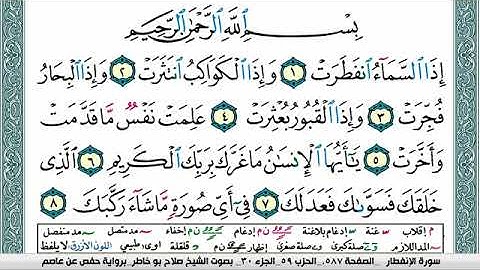 بِسْمِ ٱللَّهِ ٱلرَّحْمَٰنِ ٱلرَّحِيمِ
إِذَا ٱلسَّمَآءُ ٱنفَطَرَتْ ١ وَإِذَا ٱلْكَوَاكِبُ ٱنتَثَرَتْ ٢ وَإِذَا ٱلْبِحَارُ
فُجِّرَتْ ٣ وَإِذَا ٱلْقُبُورُ بُعْثِرَتْ ٤ عَلِمَتْ نَفْسٌ مَّا قَدَّمَتْ
وَأَخَّرَتْ ٥ يَٰٓأَيُّهَا ٱلْإِنسَٰنُ مَا غَرَّكَ بِرَبِّكَ ٱلْكَرِيمِ ٦ ٱلَّذِى
خَلَقَكَ فَسَوَّىٰكَ فَعَدَلَكَ ٧ فِىٓ أَىِّ صُورَةٍ مَّا شَآءَ رَكَّبَكَ ٨
م إقلاب غنة إدغام بلاغنة ن م إدغام ن م إخفاء مد متصل مد منفصل
المد اللازم صلة كبرى صلة صغرى إظهار ن م قلقلة اوى طبيعي اللون الأزرق لا يلفظ
سورة الإنفطار الصفحة ٥٨٧. الحزب ٥٩. الجزء ٣٠. بصوت الشيخ صلاح بو خاطر. برواية حفص عن عاصم